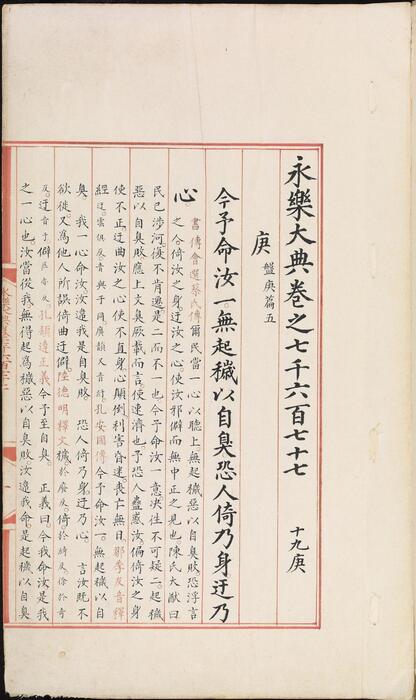 永樂大典卷之七千六百七十七 十九庚
庚 盤庚篇五
今予命汝一無起穢以自臭恐人倚乃身迂乃
心 書傳會選蔡氏傳爾民當一心以聽上無起穢惡以自臭敗恐浮言
之人倚汝之身迂汝之心使汝邪僻而無中正之見也陳氏大猷曰
民已涉河復不肯遷是二而不一也今予命汝一意決往不可疑二起穢
惡以自臭敗應上文臭厥載而言使速濟也予恐人蠱惑汝偏倚汝之身
使不正迂曲汝之心使不直身心顛倒利害昏迷喪亡無日鄒季友音釋
經迂雲俱反音與于同廣韻又音紆孔安國傳今予命汝一無起穢以自
臭我一心命汝汝違我是自臭敗恐人倚乃身迂乃心言汝既不
欲徙又為他人所誤倚曲迂僻陸德明釋文穢於廢反倚於綺反徐於奇
反迂音于僻匹亦反孔穎達正義今予至自臭正義曰今我命汝是我
之一心也汝當從我無得起為穢惡以自臭敗汝違我命是起穢以自臭